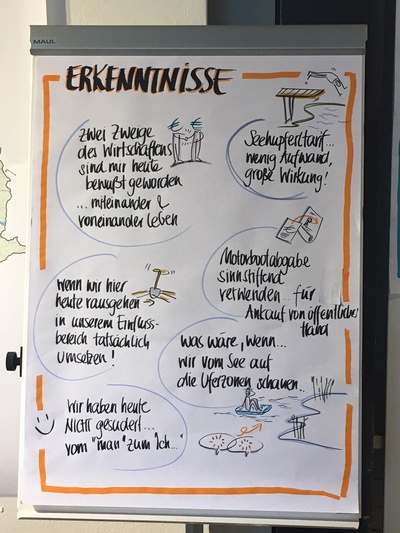 MAUL
ERKENNTNISSE
zwei zweige
des Wirtschaftens
sind mir heute
bewußt geworden
... miteinander &
voneinander leben
Seehupferltarif...
wenig Aufwand,
große Wirkung!
Motorbootabgabe
sinnstiftend
verwenden... für
Ankauf von öffentlicher
Hand
wenn wir hier
heute rausgehen →
in unserem Einfluss-
bereich tatsächlich
umsetzen!
was wäre, wenn...
wir vom See auf
die Uferzonen schauen..
Wir haben heute
NICHT gesudert...
vom "man" zum Ich..."